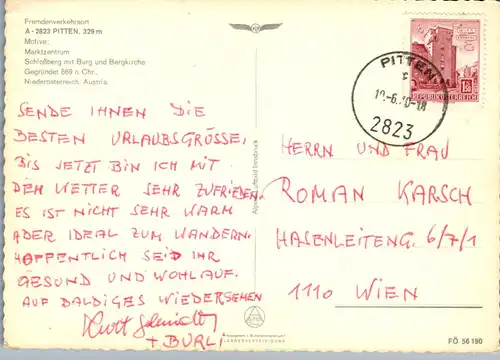 Fremdenverkehrsort
A-2823 PITTEN, 329 m
Motive:
Marktzentrum
Schloßberg mit Burg und Bergkirche
Gegründet 869 n. Chr.,
Niederösterreich, Austria
SENDE IHNEN DIE
BESTEN URLAUBSGRÜSSE,
BIS JETZT BIN ICH MIT
DEM WETTER SEHR ZUFRIEDEN.
ES IST NICHT SEHR WARM
ABER IDEAL ZUM WANDERN.
HOFFENTLICH SEID IHR
GESUND UND WOHLAUF.
AUF BALDIGES WIEDERSEHEN
Kurt
+ BURLI
Alpine Luftbild Innsbruck
PITTEN
2823
REPUBLIK ÖSTERREICH
HERRN UND FRAU
ROMAN KARSCH
HASENLEITENG. 6/7/1
1110 WIEN
FÖ 56190